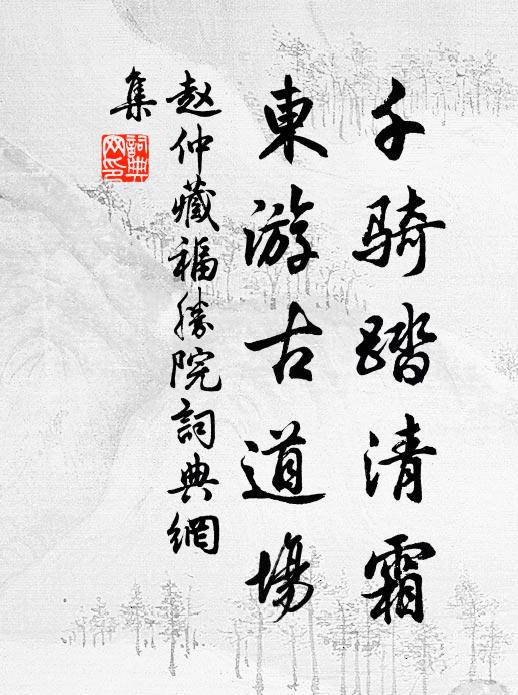 千騎踏清霜
東游古道場
赵仲藏福勝院詞典網
集
詞典網印